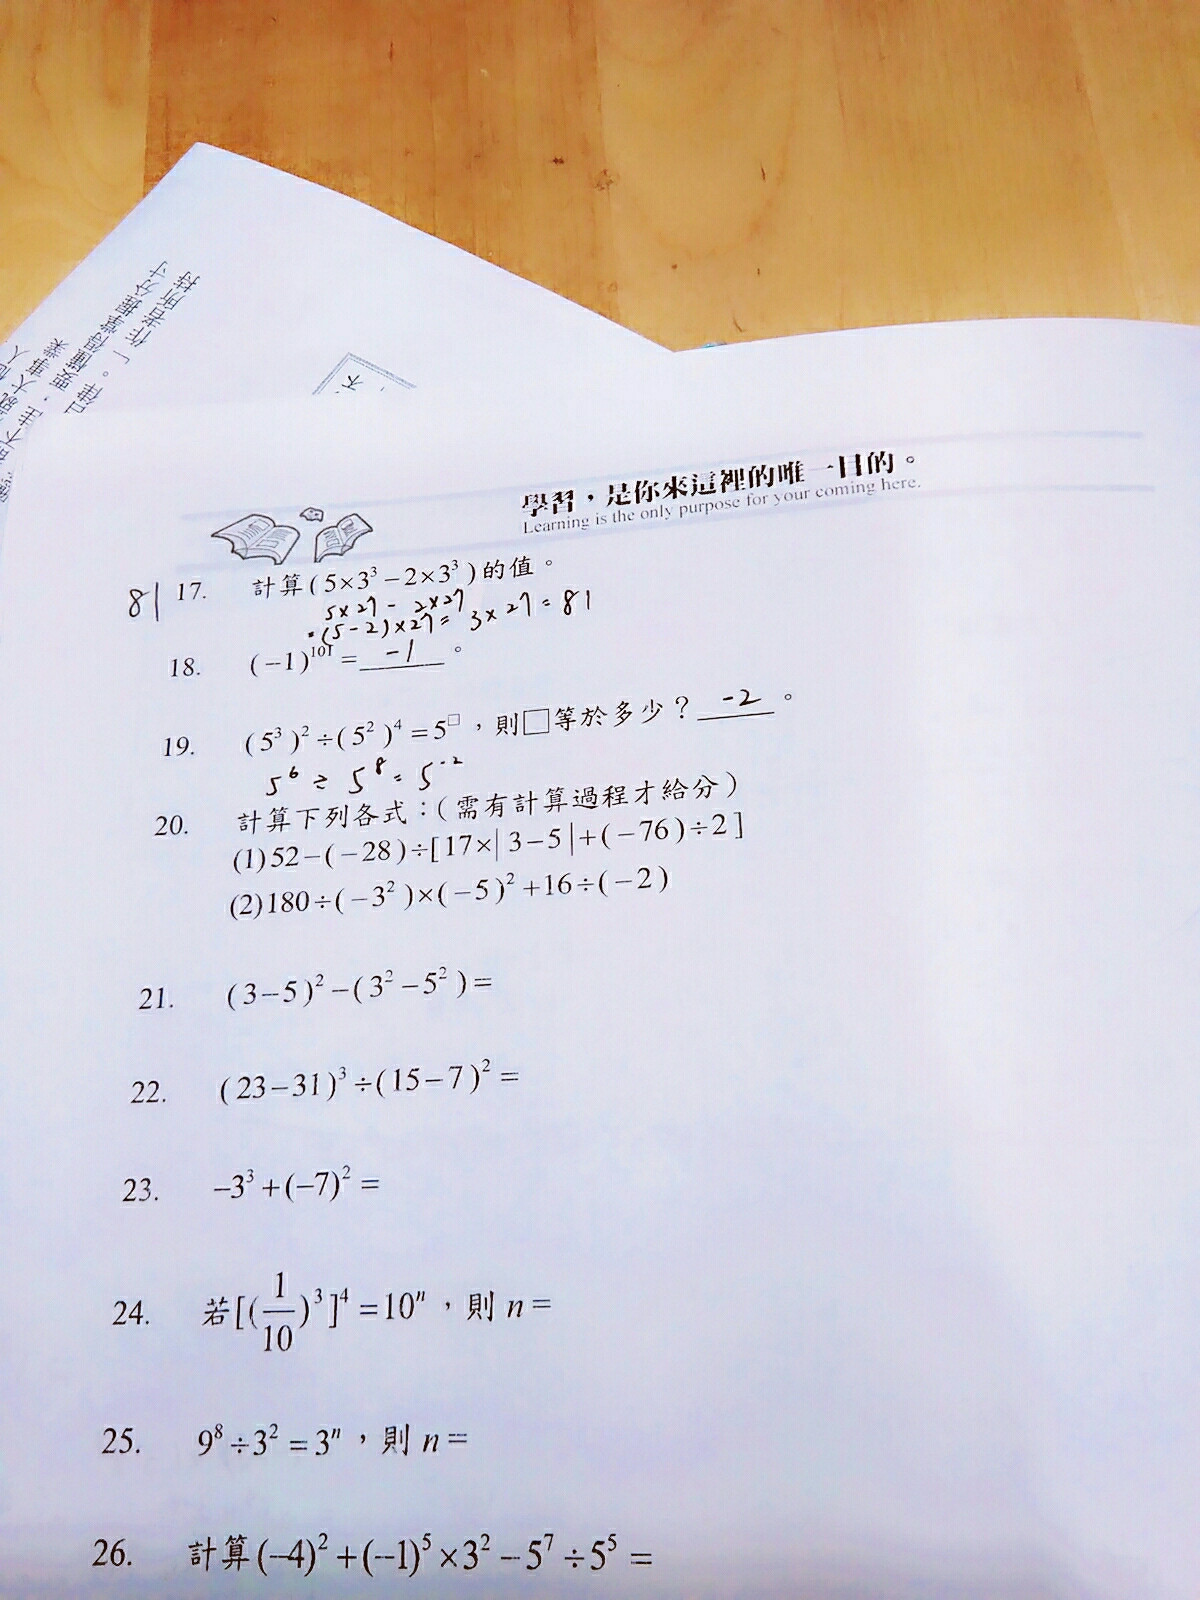 學習，是你來這裡的唯一目的。
Learning is the only purpose for your coming here.
81 17. 計算(5×3³−2×3³)的值。
5×27 − 2×27
=(5−2)×27= 3×27=81
18. (−1)¹⁰¹=-1。
19. (5³)²÷(5²)⁴=5□，則□等於多少？-2。
5⁶ ÷ 5⁸ = 5⁻²
20. 計算下列各式：(需有計算過程才給分)
(1)52−(−28)÷[17×|3−5|+(−76)÷2]
(2)180÷(−3²)×(−5)²+16÷(−2)
21. (3−5)²−(3²−5²)=
22. (23−31)³÷(15−7)²=
23. −3³+(−7)²=
24. 若[(1/10)³]⁴=10ⁿ，則n=
25. 9⁸÷3²=3ⁿ，則n=
26. 計算(−4)²+(−1)⁵×3²−5⁷÷5⁵=